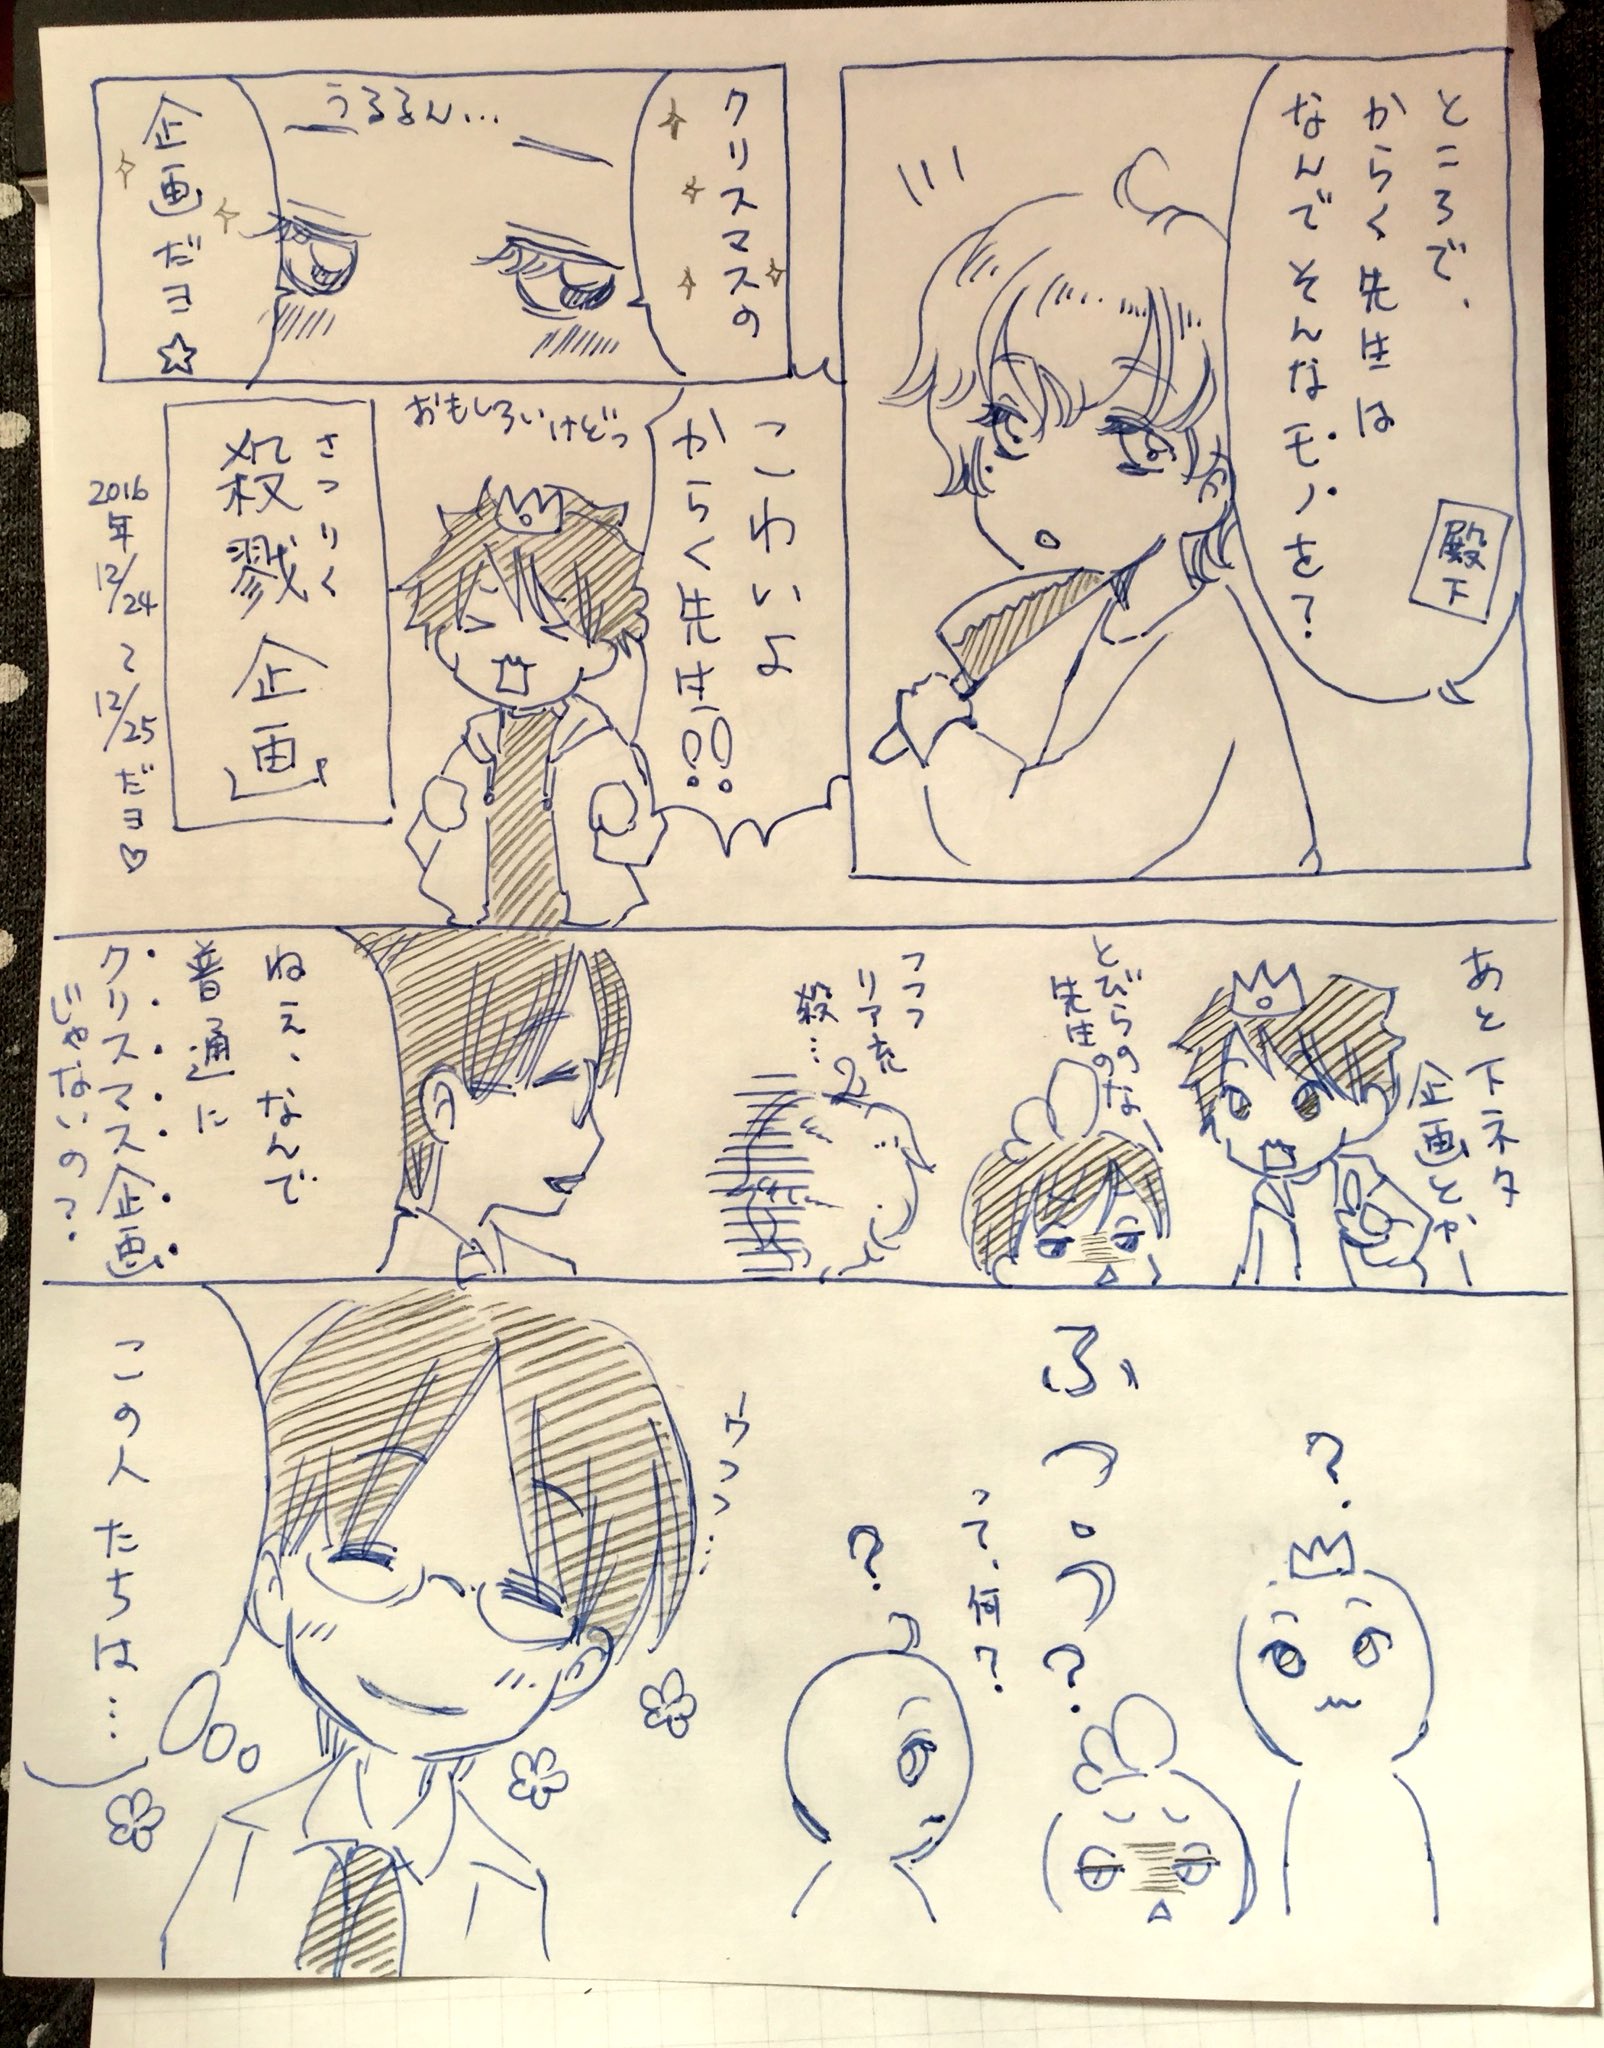 ところで、
からく先生は
なんでそんなモノを？
殿下
クリスマスの
うるるん…
企画だヨ☆
こわいよ
からく先生!!
おもしろいけどっ
さつりく
殺戮企画
2016年12/24〜12/25だヨ♡
あと下ネタ
企画とかー
とびらのの
先生のなー
フフフ
リア充
殺…
ねえ、なんで
普通に
クリスマス企画
じゃないの？
？
ふ つ う？
って、何？
？
ウフフ…
この人たちは…